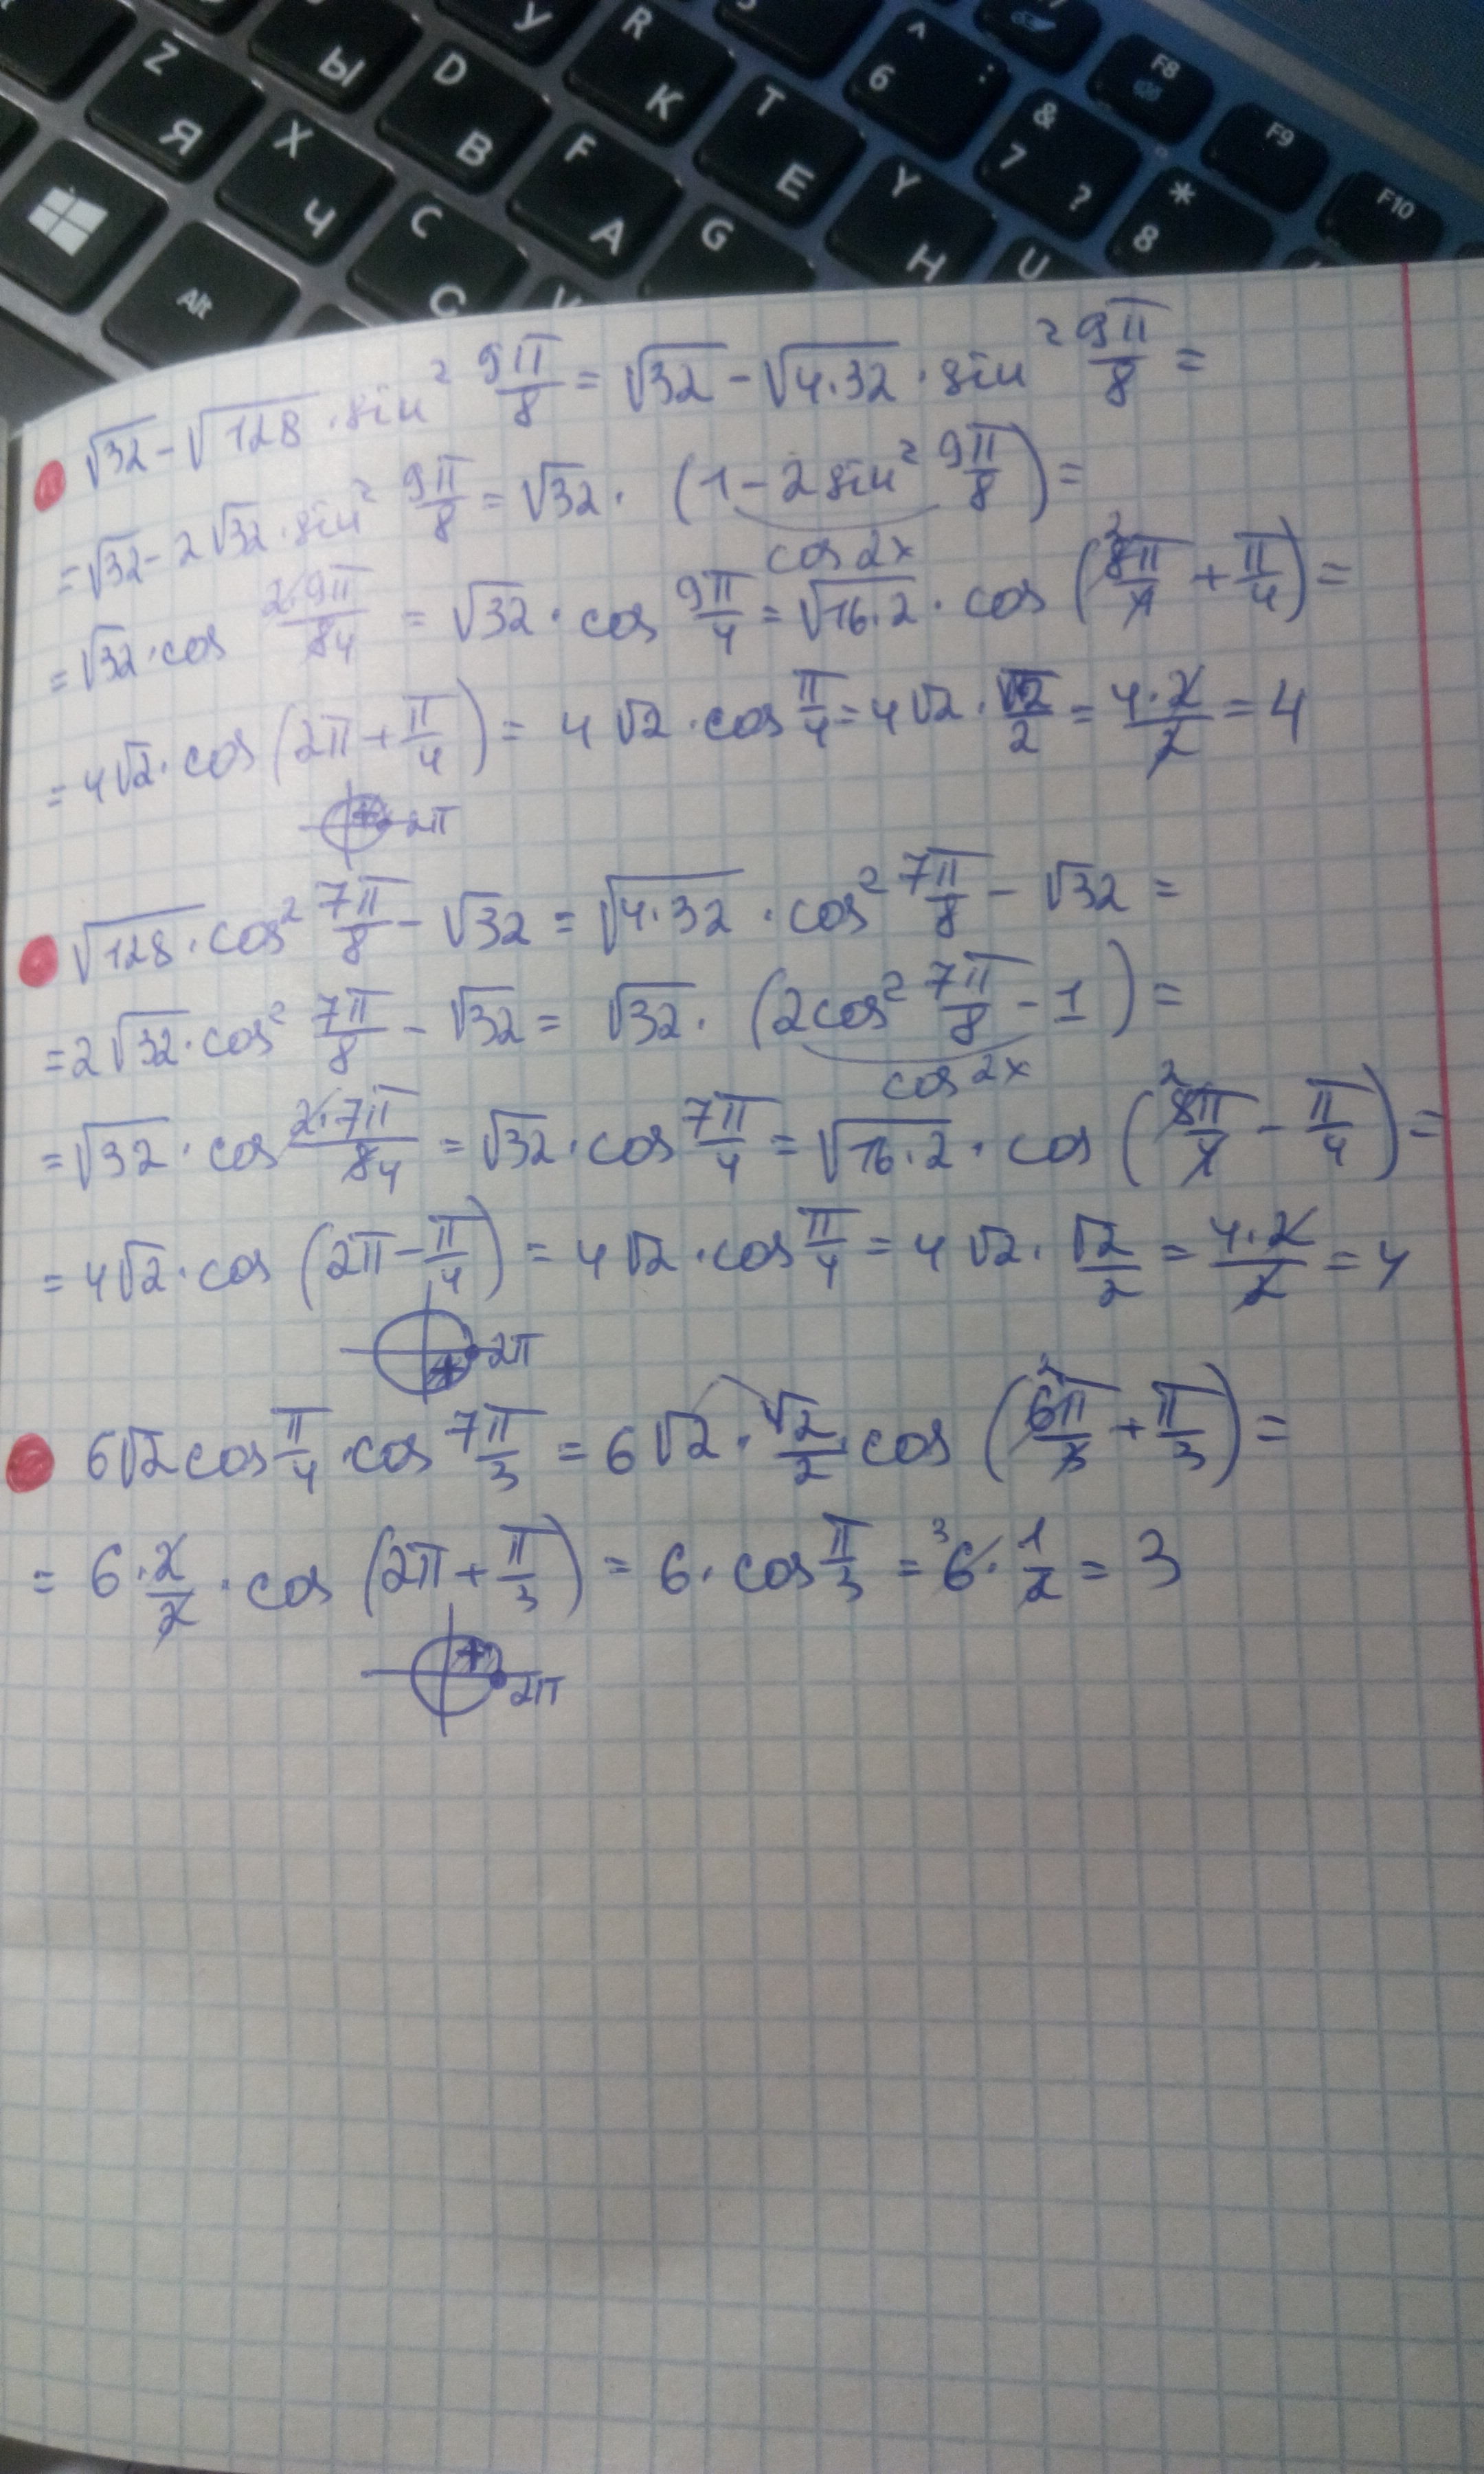 У R K 5 ^ 6 : F7
Z Я Ы D В T Е & 7 ? F8
X Ч F А Y Н * 8 F9
Alt C С G U F10
√32 - √128 · sin² 9π/8 = √32 - √4·32 · sin² 9π/8 =
= √32 - 2√32 · sin² 9π/8 = √32 · (1 - 2 sin² 9π/8) =
cos 2x
= √32 · cos 2·9π/84 = √32 · cos 9π/4 = √16·2 · cos (²8π/4 + π/4) =
= 4√2 · cos (2π + π/4) = 4√2 · cos π/4 = 4√2 · √2/2 = 4·2/2 = 4
+ 2π
√128 · cos² 7π/8 - √32 = √4·32 · cos² 7π/8 - √32 =
= 2√32 · cos² 7π/8 - √32 = √32 · (2cos² 7π/8 - 1) =
cos 2x
= √32 · cos 2·7π/84 = √32 · cos 7π/4 = √16·2 · cos (²8π/4 - π/4) =
= 4√2 · cos (2π - π/4) = 4√2 · cos π/4 = 4√2 · √2/2 = 4·2/2 = 4
+ 2π
6√2 cos π/4 · cos 7π/3 = 6√2 · √2/2 · cos (²6π/3 + π/3) =
= 6 · 2/2 · cos (2π + π/3) = 6 · cos π/3 = ³6 · 1/2 = 3
+ 2π